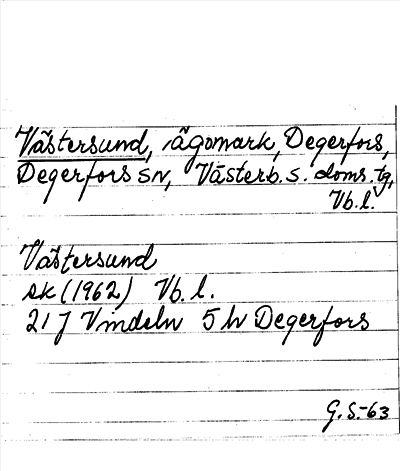 Västersund, ägomark, Degerfors,
Degerfors sn, Västerb. s. doms. tg,
Vb. l.
Västersund
ek (1962) Vb. l.
21 J Vindeln 5 h Degerfors
G. S. -63